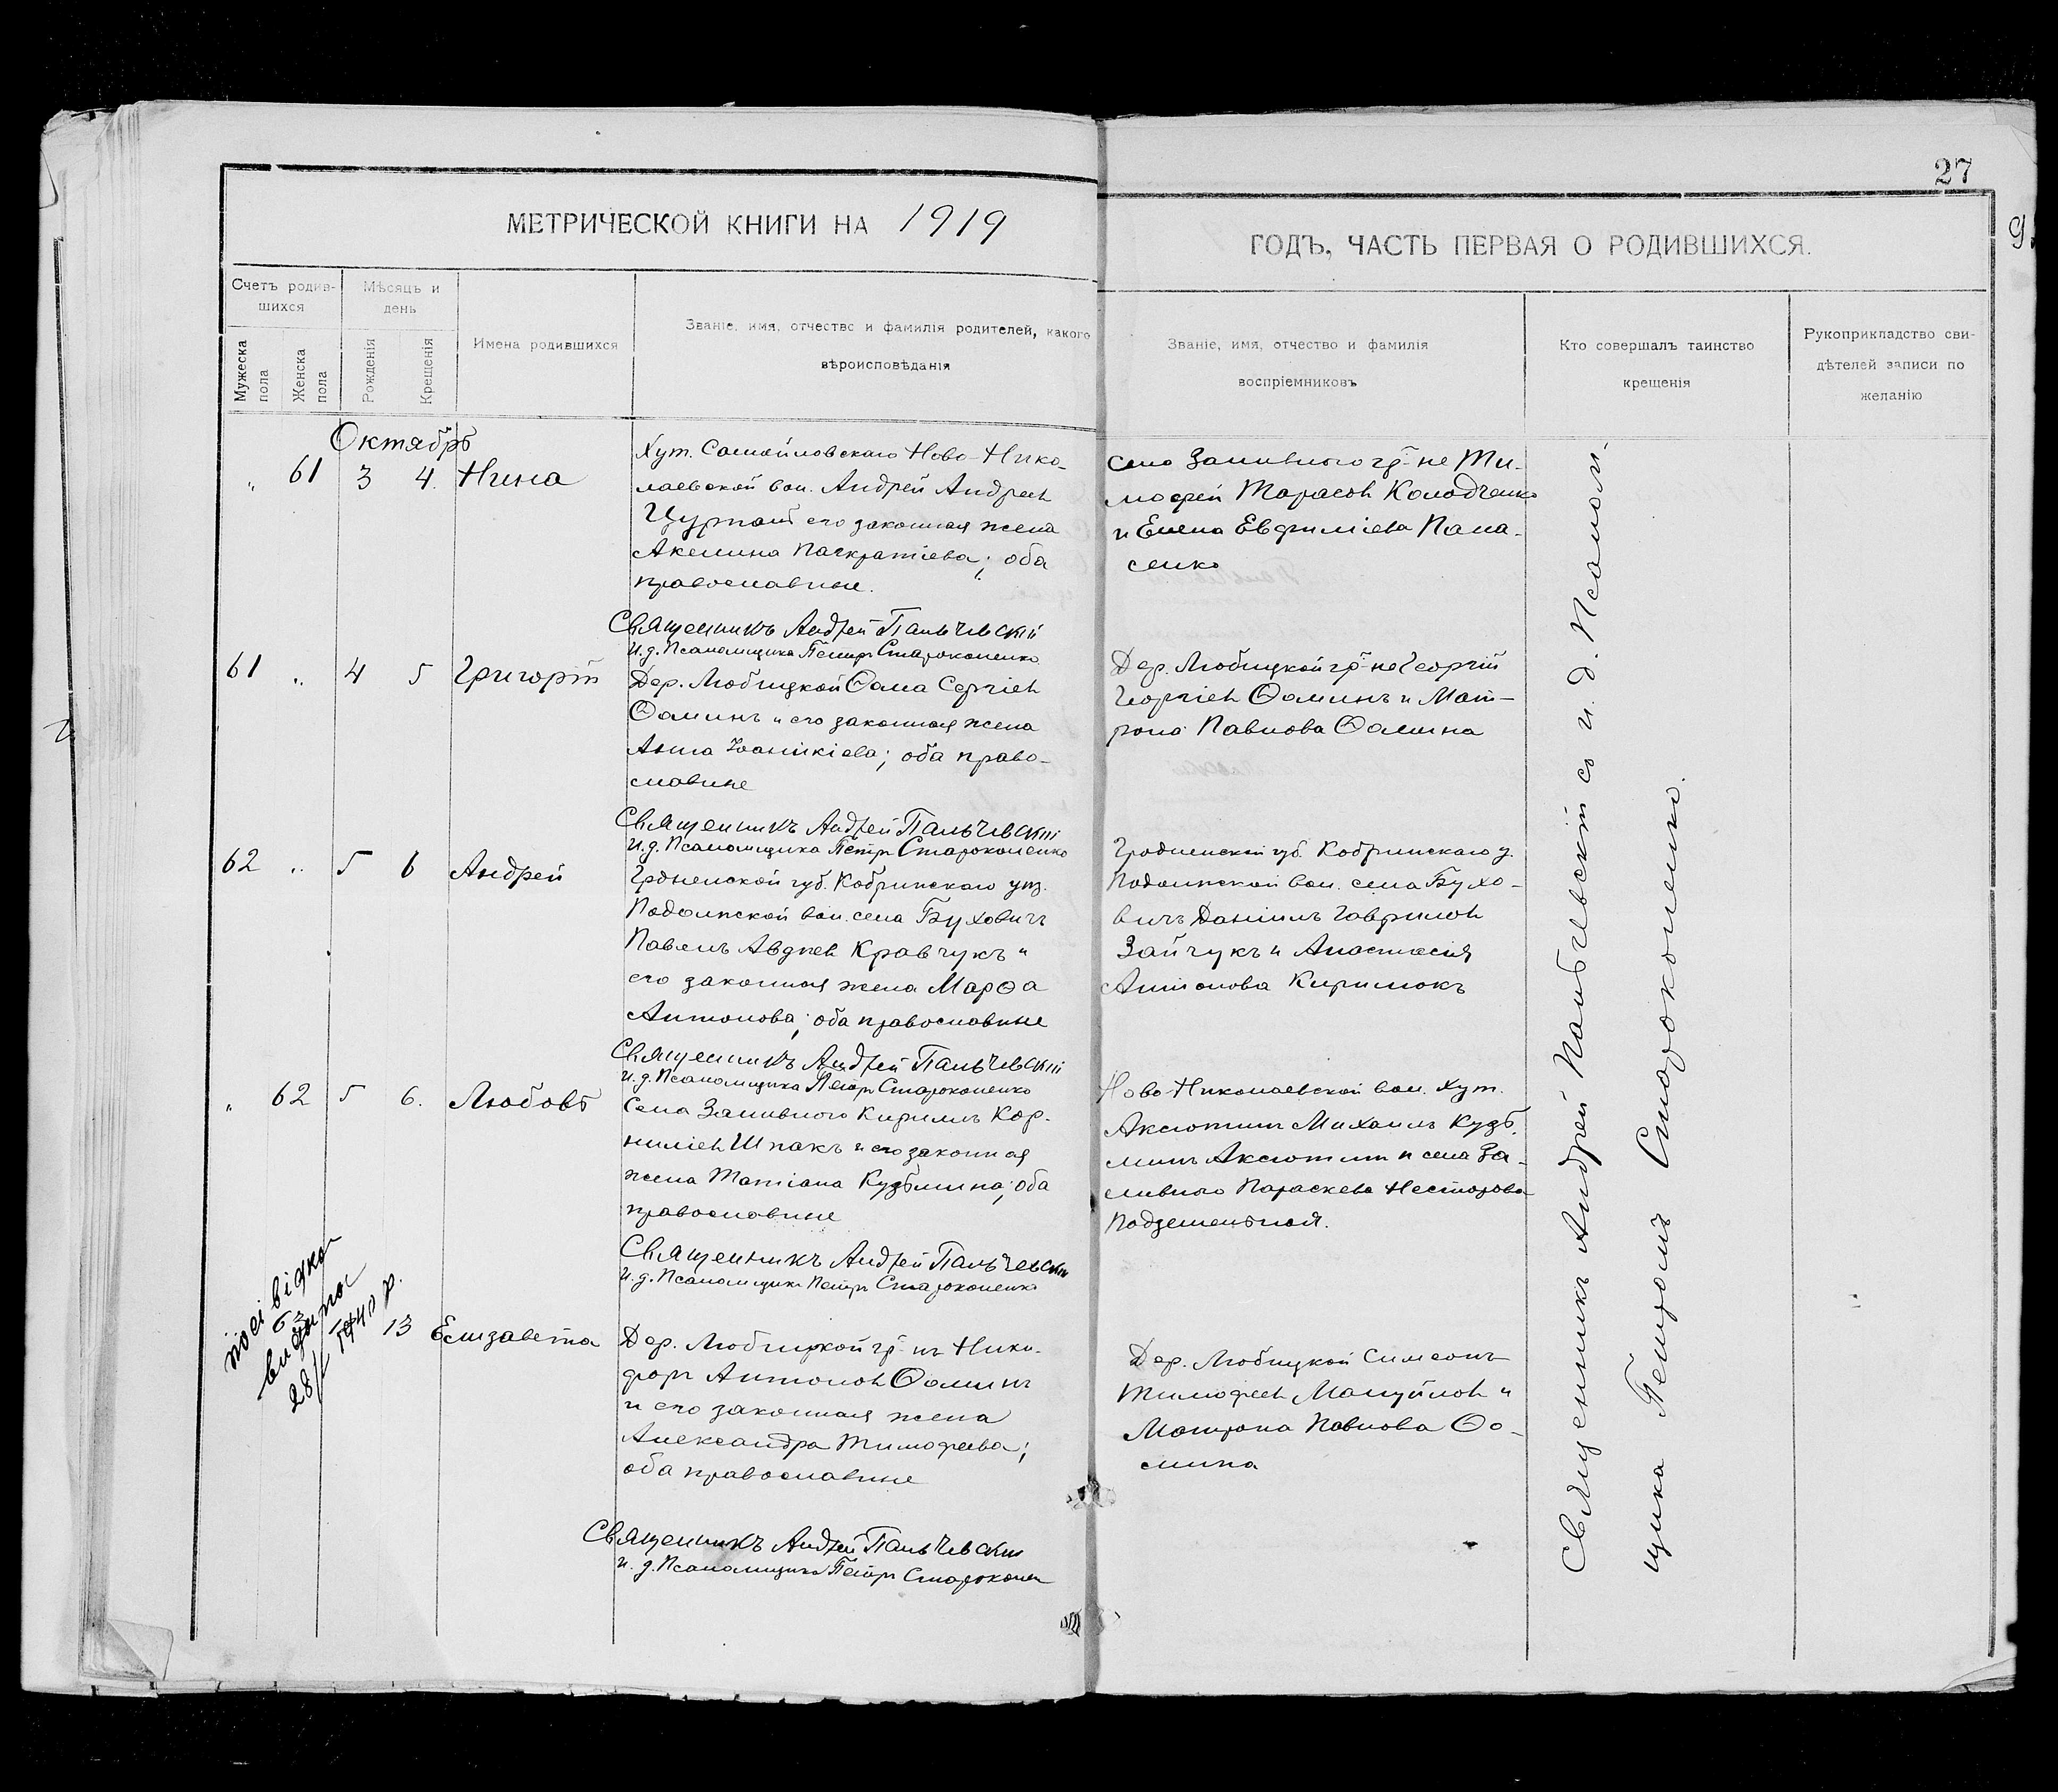 27
МЕТРИЧЕСКОЙ КНИГИ НА 1919
ГОДЪ, ЧАСТЬ ПЕРВАЯ О РОДИВШИХСЯ.
Счетъ родив-
шихся
Мужеска пола
Женска пола
Мѣсяцъ и
день
Рожденія
Крещенія
Имена родившихся
Званіе, имя, отчество и фамилія родителей, какого
вѣроисповѣданія
Званіе, имя, отчество и фамилія
воспріемниковъ
Кто совершалъ таинство
крещенія
Рукоприкладство сви-
дѣтелей записи по
желанію
Октябрь
„ 61 3 4. Нина
Хут. Самойловскаго Ново-Нико-
лаевской вол. Андрей Андреев
его законная жена
Акелина Панкратіева; оба
православные.
Священникъ Андрей Пальчевскій
И.д. Псаломщика Петръ Староконенко
Село Заливного гр-не Ти-
мофей Тарасов Колодченко
и Елена Евфиміева Пана-
сенко
61 „ 4 5 Григорій
Дер. Любицкой Ѳома Сергіев
Ѳоминъ и его законная жена
Анна Іоаникіева; оба право-
славные
Священникъ Андрей Пальчевскій
И.д. Псаломщика Петръ Староконенко
Дер. Любицкой гр-не Георгій
Георгіев Ѳоминъ и Мат-
рона Павлова Ѳомина
62 „ 5 6 Андрей
Гродненской губ. Кобринскаго уѣз.
Подолпской вол. села Буховичъ
Павелъ Авдеев Кравчукъ и
его законная жена Марѳа
Антонова; оба православные
Священникъ Андрей Пальчевскій
И.д. Псаломщика Петръ Староконенко
Гродненской губ. Кобринскаго у.
Подолпской вол. села Бухо-
вичъ Даніилъ Гаврилов
Зайчукъ и Анастасія
Антонова Кирилюкъ
„ 62 5 6. Любовь
Села Заливного Кириллъ Кор-
ниліев Шпакъ и его законная
жена Татіана Кузьмина; оба
православные
Священникъ Андрей Пальчевскій
И.д. Псаломщика Петръ Староконенко
Ново-Николаевской вол. Хут.
Аксютинъ Михаилъ Кузь-
минъ Аксютинъ и села За-
ливного Параскева Несторова
63 13 Елизавета
видана
28/ 1940 р.
Дер. Любицкой гр-нъ Ники-
форъ Антонов Ѳоминъ
и его законная жена
Александра Тимофеева;
оба православные
Священникъ Андрей Пальчевскій
И.д. Псаломщика Петръ Староконен
Дер. Любицкой Симеонъ
Тимофеев Мануйлов и
Матрона Павлова Ѳо-
мина
Священникъ Андрей Пальчевскій со и.д. Псалом-
щика Петромъ Староконенко.